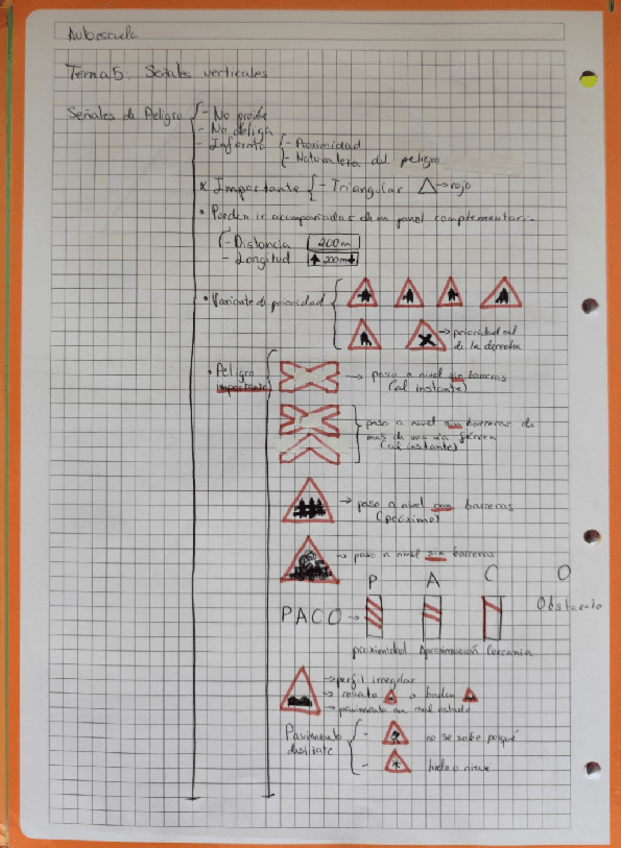 Autoescuela
Tema 5: Señales verticales
Señales de Peligro
- No prohibe
- No obliga
- Informa
- Proximidad
- Naturaleza del peligro
* Importante
- Triangular → rojo
• Pueden ir acompañadas de un panel complementari
- Distancia 200m
- Longitud 200m
• Variante de prioridad
→ prioridad
de la derecha
• Peligro
importante
→ paso a nivel sin barreras
(al instante)
paso a nivel sin barreras de
mas de una via férrea
(al instante)
→ paso a nivel con barreras
(próximo)
→ paso a nivel sin barreras
P A C O
PACO → Obstaculo
proximidad Aproximación Cercania
→ perfil irregular
→ resalto o baden
→ pavimento en mal estado
Pavimento
deslizate
- no se sabe porqué
- hielo o nieve